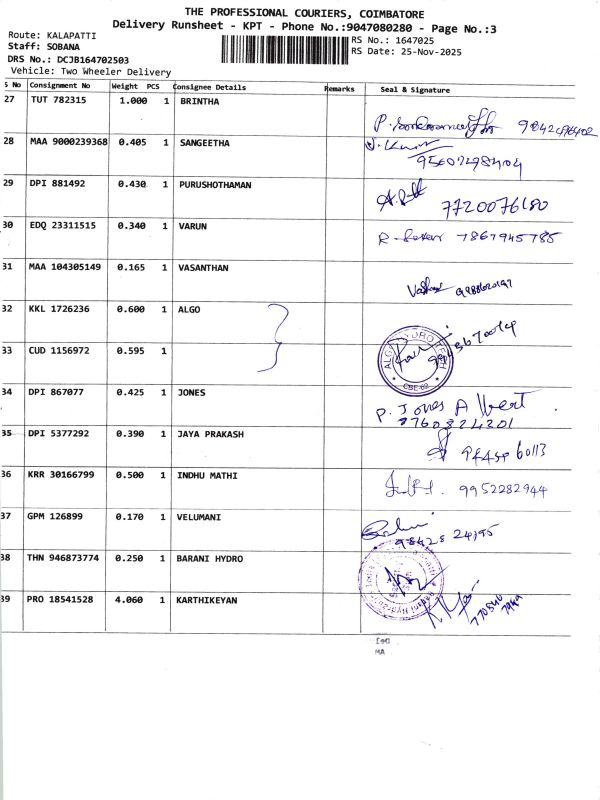 THE PROFESSIONAL COURIERS, COIMBATORE
Delivery Runsheet - KPT - Phone No.:9047080280 - Page No.:3
Route: KALAPATTI
RS No.: 1647025
Staff: SOBANA
RS Date: 25-Nov-2025
DRS No.: DCJB164702503
Vehicle: Two Wheeler Delivery
S No Consignment No Weight PCS Consignee Details Remarks Seal & Signature
27 TUT 782315 1.000 1 BRINTHA
28 MAA 9000239368 0.405 1 SANGEETHA
29 DPI 881492 0.430 1 PURUSHOTHAMAN
7720076180
30 EDQ 23311515 0.340 1 VARUN
7867945785
31 MAA 104305149 0.165 1 VASANTHAN
32 KKL 1726236 0.600 1 ALGO
33 CUD 1156972 0.595 1
34 DPI 867077 0.425 1 JONES
P. Jones Albert
35 DPI 5377292 0.390 1 JAYA PRAKASH
36 KRR 30166799 0.500 1 INDHU MATHI
9952282944
37 GPM 126899 0.170 1 VELUMANI
38 THN 946873774 0.250 1 BARANI HYDRO
39 PRO 18541528 4.060 1 KARTHIKEYAN